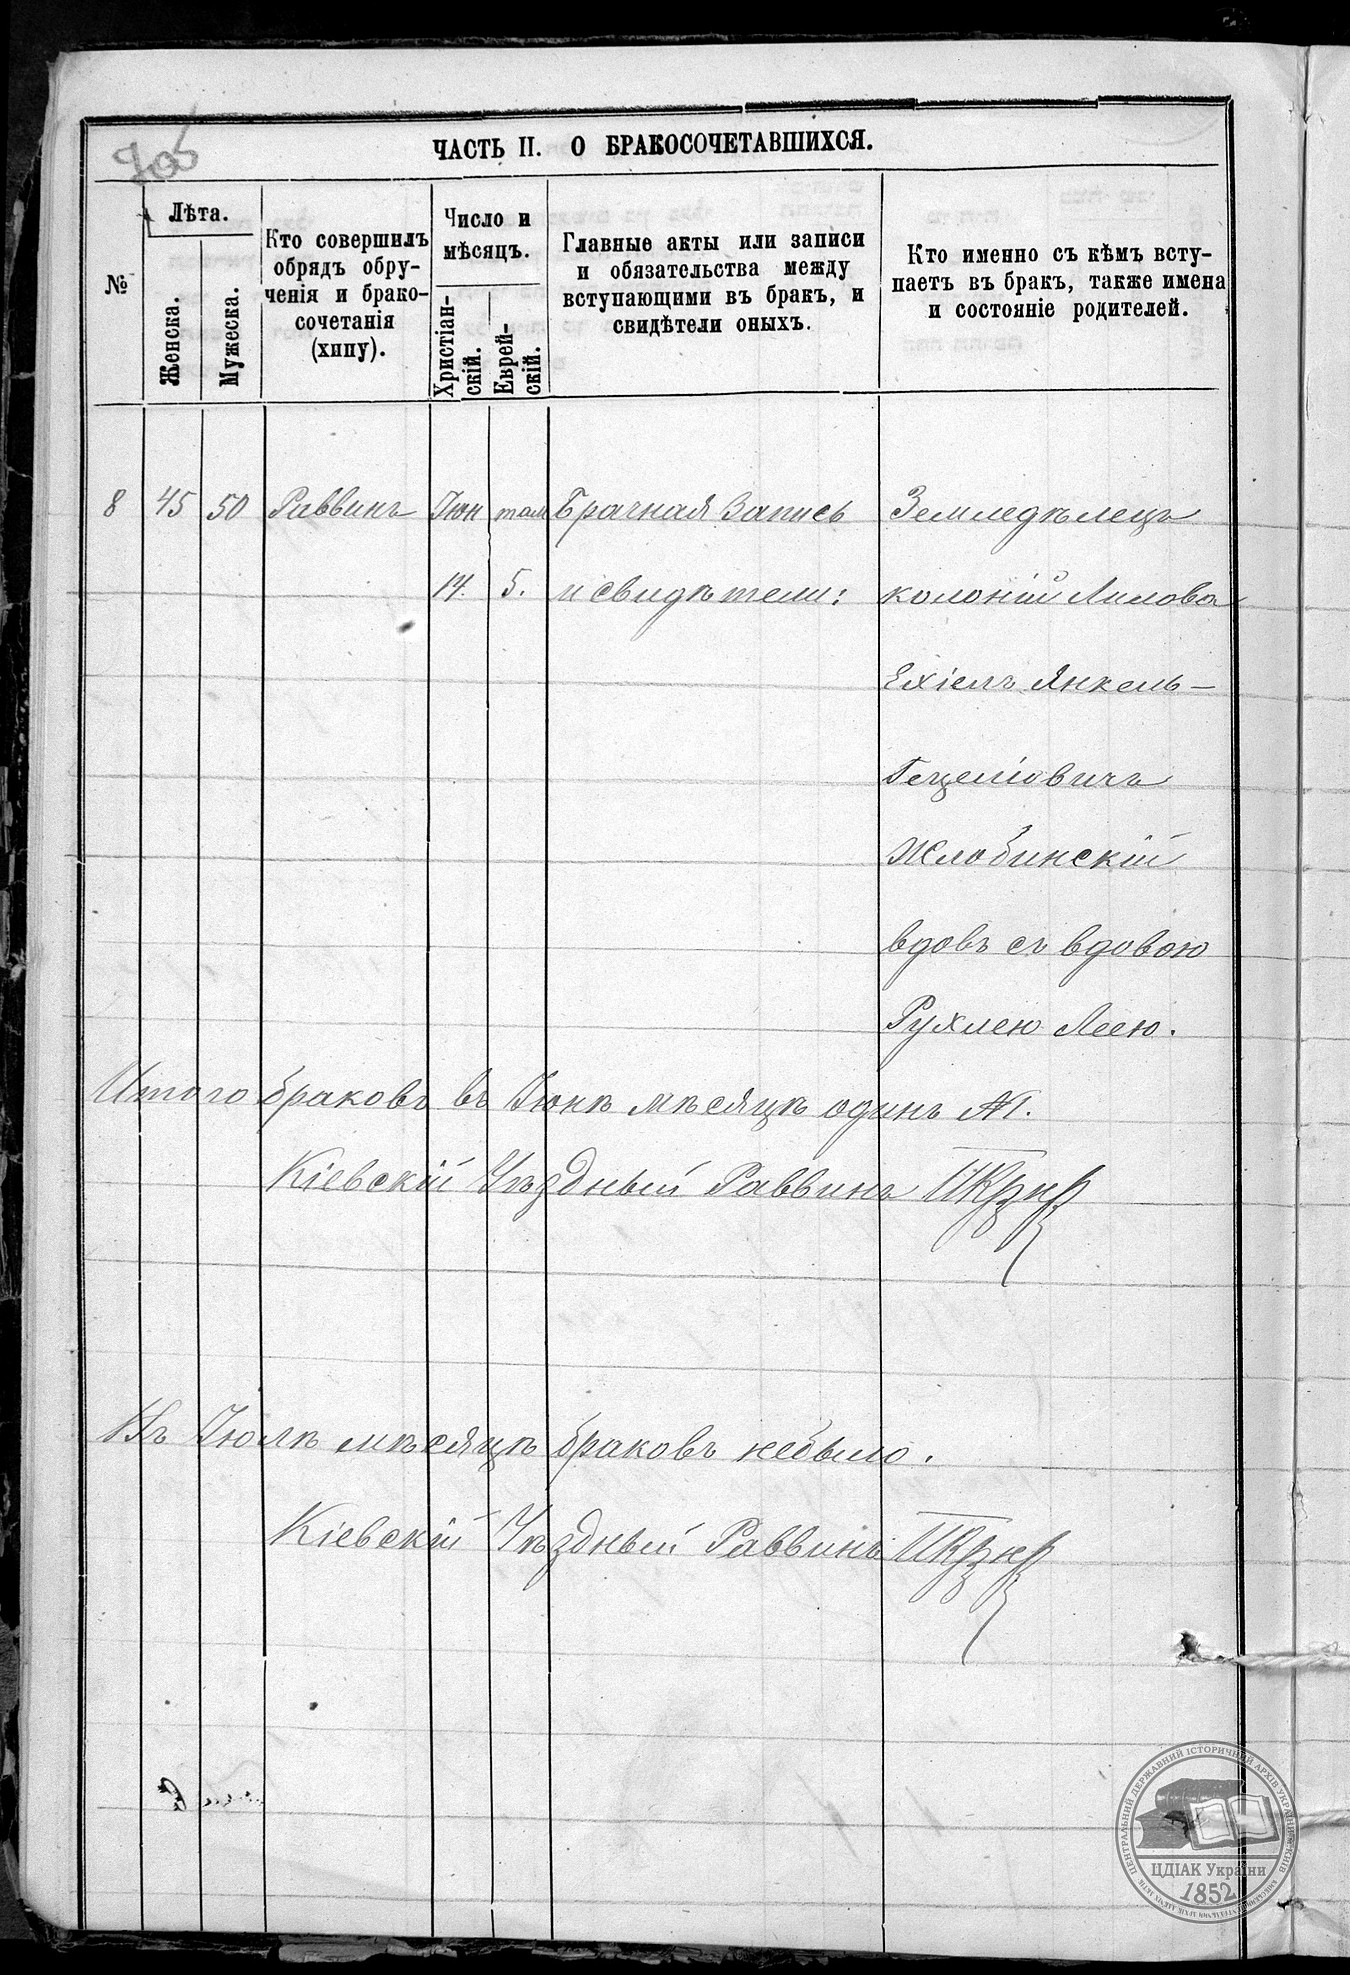 ЧАСТЬ II. О БРАКОСОЧЕТАВШИХСЯ.
№
Лѣта.
Женска.
Мужеска.
Кто совершилъ
обрядъ обру-
ченія и брако-
сочетанія
(хипу).
Число и
мѣсяцъ.
Христіан-
скій.
Еврей-
скій.
Главные акты или записи
и обязательства между
вступающими въ бракъ, и
свидѣтели оныхъ.
Кто именно съ кѣмъ всту-
паетъ въ бракъ, также имена
и состояніе родителей.
8 45 50 Раввинъ Іюн там Брачная Запись Земледѣлецъ
14. 5. и свидѣтели: колоніи
Ехіель Янкель-
Гецеліовичъ
Жлобинскій
вдовъ съ вдовою
Рухлею Леею.
Итого браковъ въ Іюнѣ мѣсяцѣ одинъ №1.
Кіевскій Уѣздный Раввинъ
Въ Іюлѣ мѣсяцѣ браковъ небыло.
Кіевскій Уѣздный Раввинъ
ЦЕНТРАЛЬНИЙ ДЕРЖАВНИЙ ІСТОРИЧНИЙ АРХІВ УКРАЇНИ, м. КИЇВ
ЦДІАК України
1852